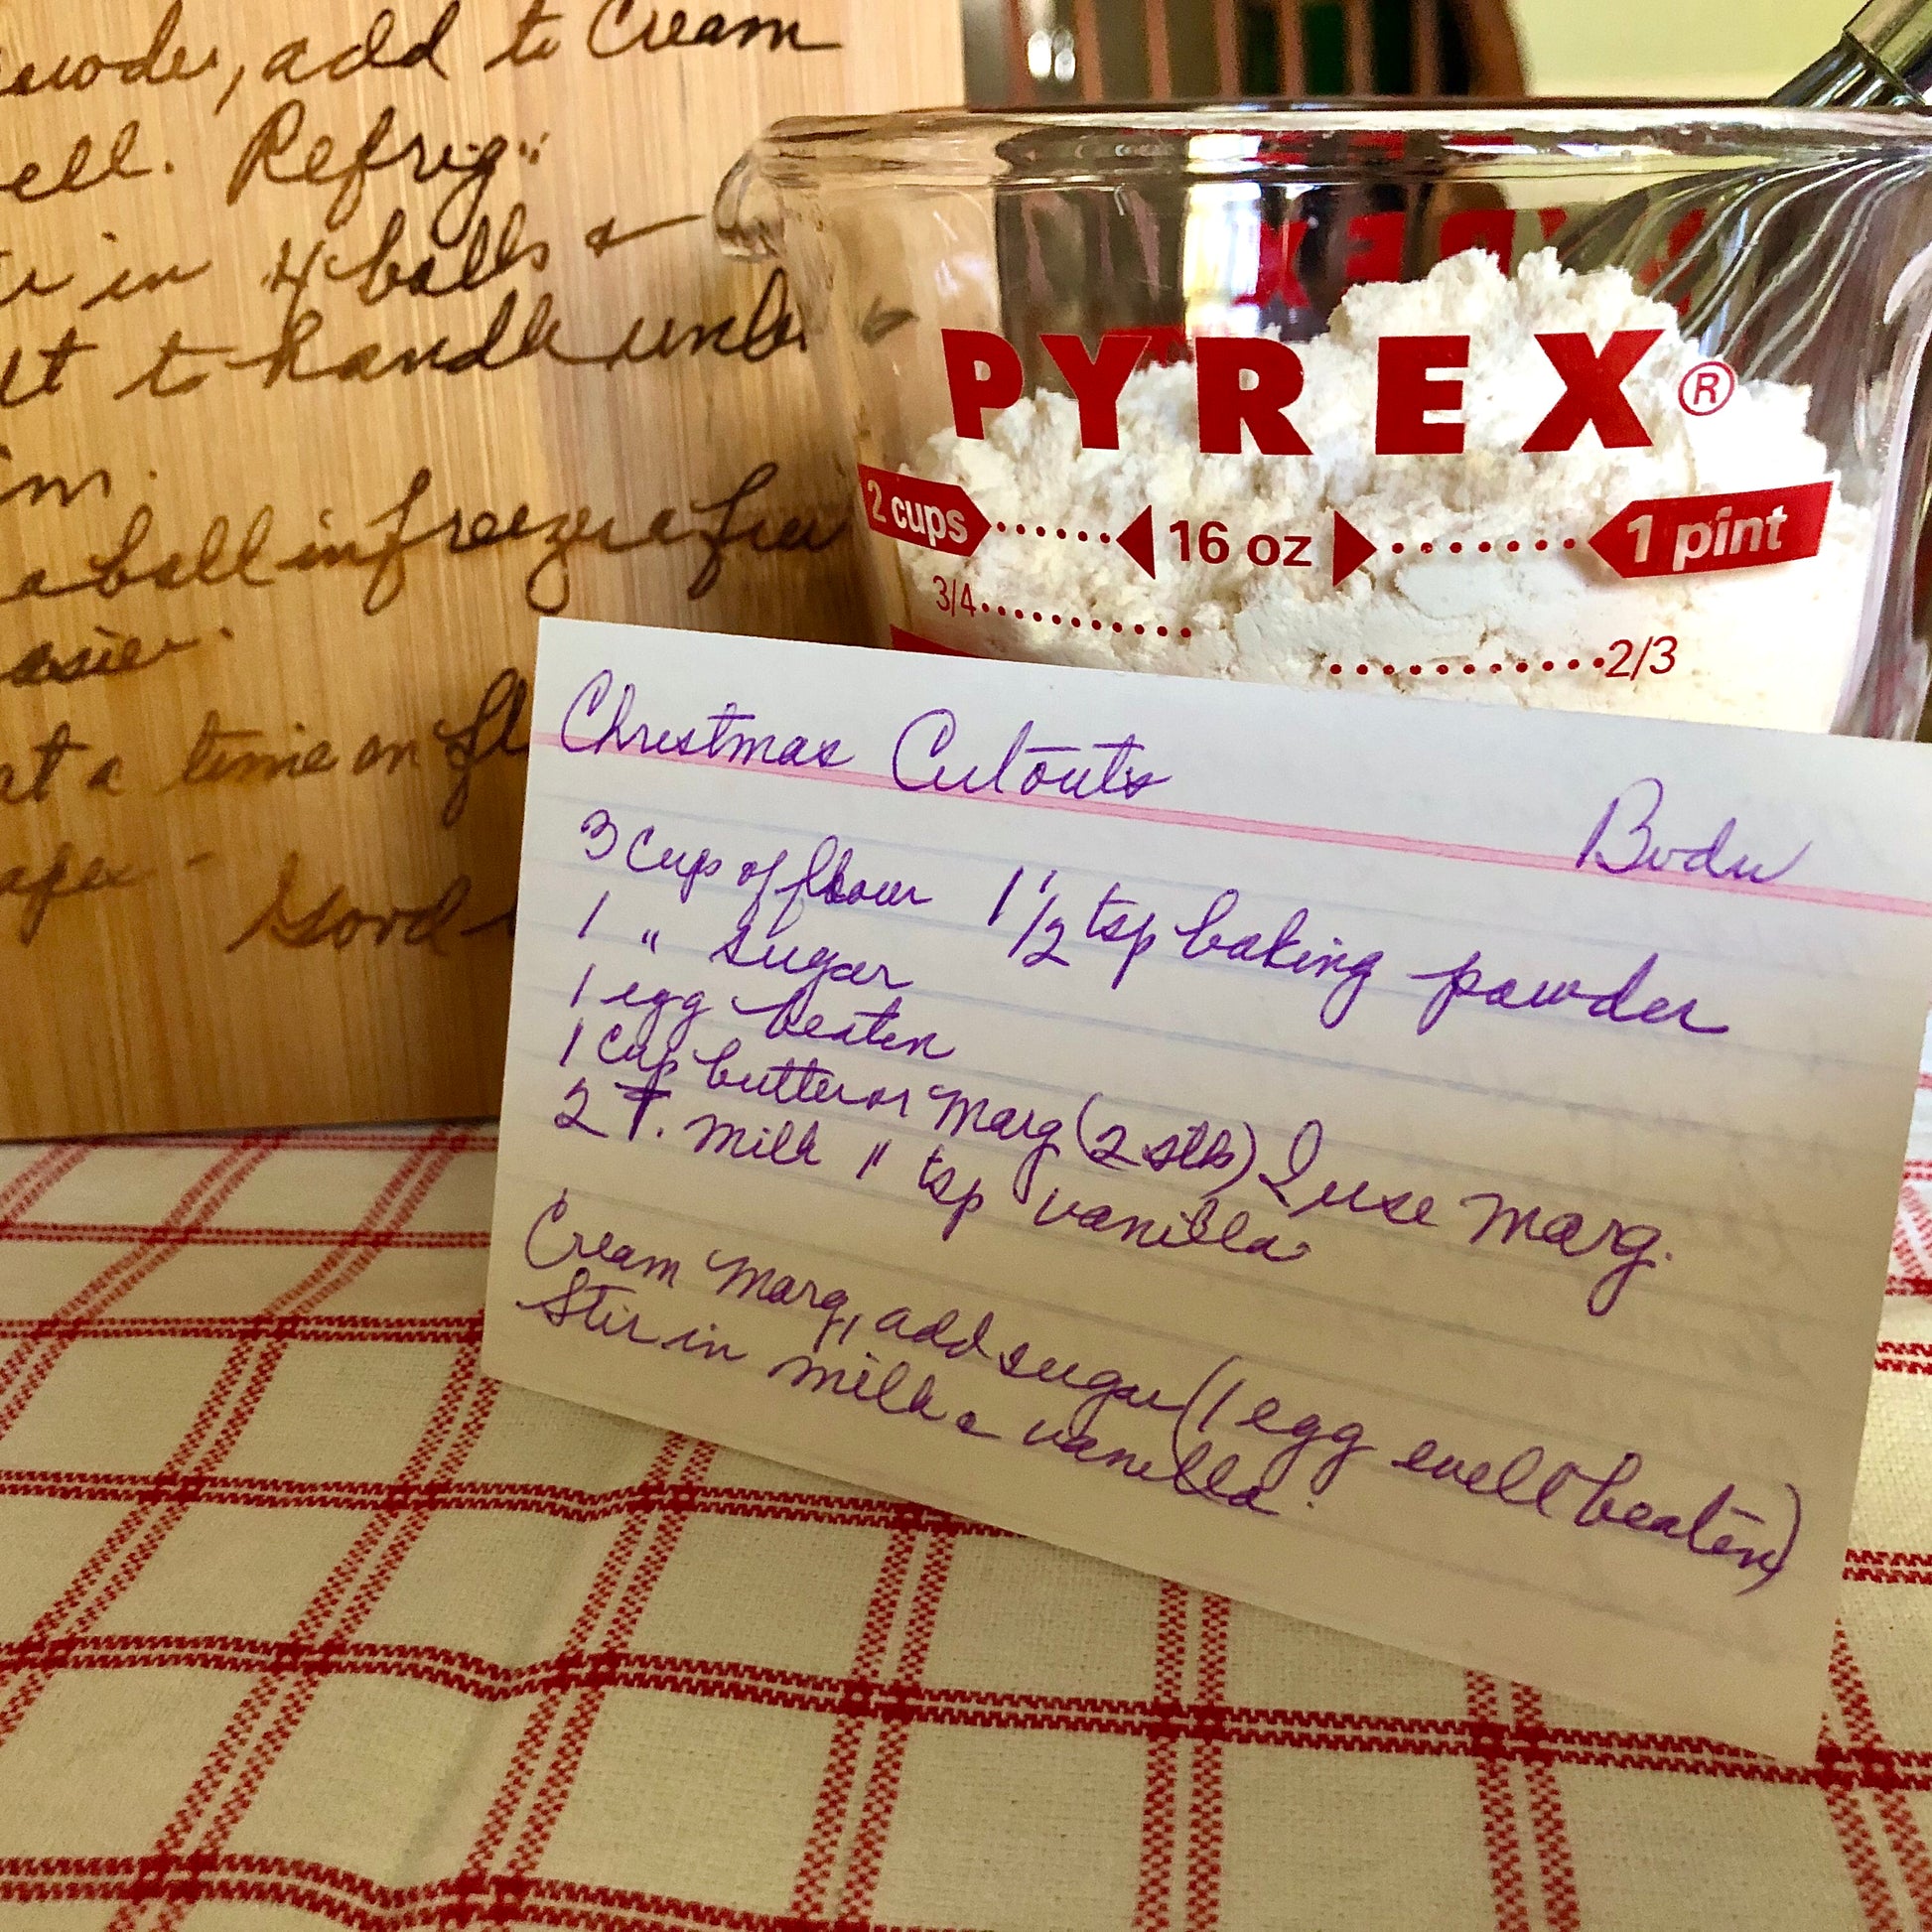 owder, add to Cream
ell. Refrig..
in 4 balls &
lt to handle unb
im.
a ball in freezer a few
asier.
at a time on fl
aper - Good
PYREX®
2 cups 16 oz 1 pint
3/4
2/3
Christmas Cutouts
3 Cup of flour 1 1/2 tsp baking powder
1 " Sugar
1 egg beaten
1 cup butter or Marg (2 stks) I use Marg.
2 T. Milk 1 tsp vanilla
Cream Marg, add sugar (1 egg well beaten)
Stir in Milk & vanilla.